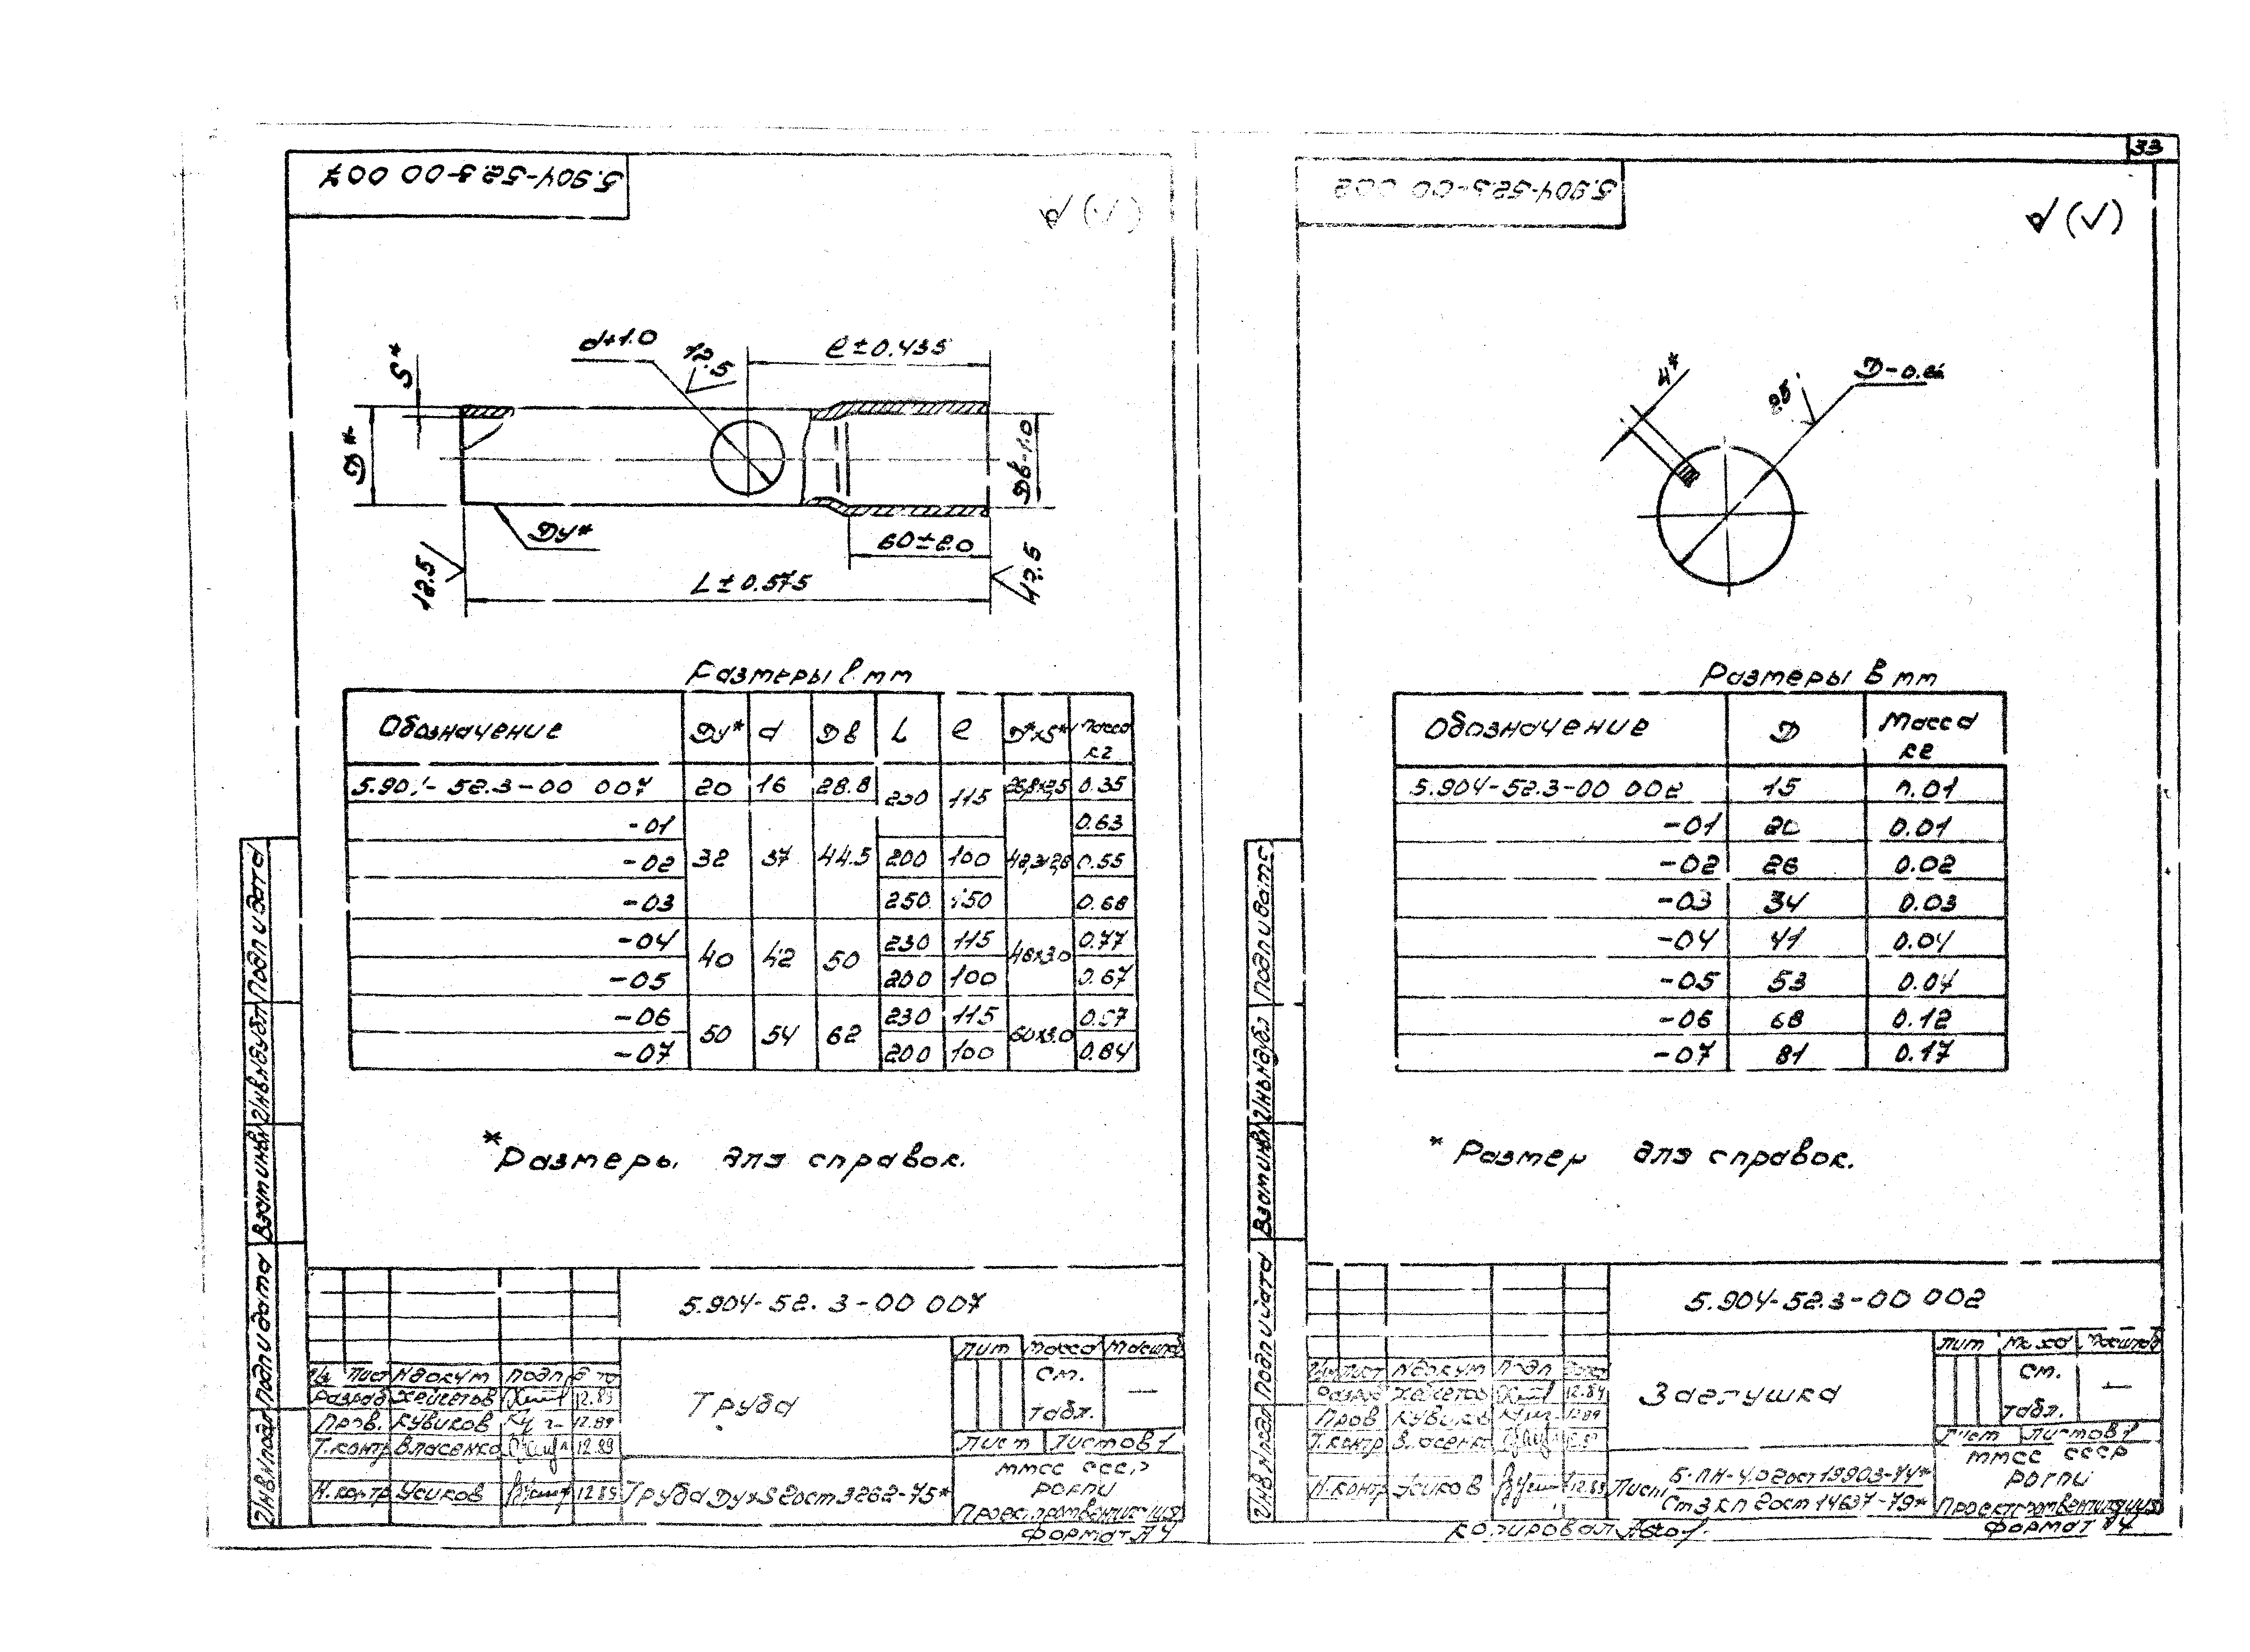 5.904-52.3-00 007
(√)
S*
d+1.0
12.5
ℓ±0.435
Д*
Дв-1.0
Ду*
60±2.0
12.5
L±0.575
12.5
Размеры в mm
Обозначение Ду* d Дв L ℓ Д*xS* Масса кг
5.904-52.3-00 007 20 16 28.8 230 115 26,8x2,5 0.35
-01 0.63
-02 32 37 44.5 200 100 0.55
-03 250 150 0.68
-04 230 115 0.77
40 42 50 48x3.0
-05 200 100 0.67
-06 230 115
50 54 62 60x3.0
-07 200 100 0.84
*Размеры для справок.
5.904-52.3-00 007
Лит Масса Масштаб
Лист N докум Подп
см.
Разраб Хейсетов 12.89
Труба
табл.
Пров. Кувиков 12.89
Т.контр Власенко 12.89
Лист Листов 1
ММСС СССР
Н.контр Усиков 12.89
Труба ДуxS Гост 3262-75*
РОГПИ
Проектпромвентиляция
Формат А4
Подп и дата
Инв N дубл
Взам инв N
Подп и дата
Инв N подл
33
5.904-52.3-00 002
(√)
4*
25
Размеры в mm
Обозначение Д Масса кг
5.904-52.3-00 002 15 0.01
-01 20 0.01
-02 26 0.02
-03 34 0.03
-04 41 0.04
-05 53 0.04
-06 68 0.12
-07 81 0.17
* Размер для справок.
5.904-52.3-00 002
Лит Масса Масштаб
Лист N докум Подп
см.
Разраб Хейсетов 12.89
Заглушка
табл.
Пров Кувиков 12.89
Т.контр Власенко
Лист Листов 1
ММСС СССР
Н.контр Усиков 12.89
Лист Б-ПН-4.0 Гост 19903-74*
Ст3кп Гост 14637-79*
РОГПИ
Проектпромвентиляция
Копировал
Формат А4
Подп и дата
Инв N дубл
Взам инв N
Подп и дата
Инв N подл